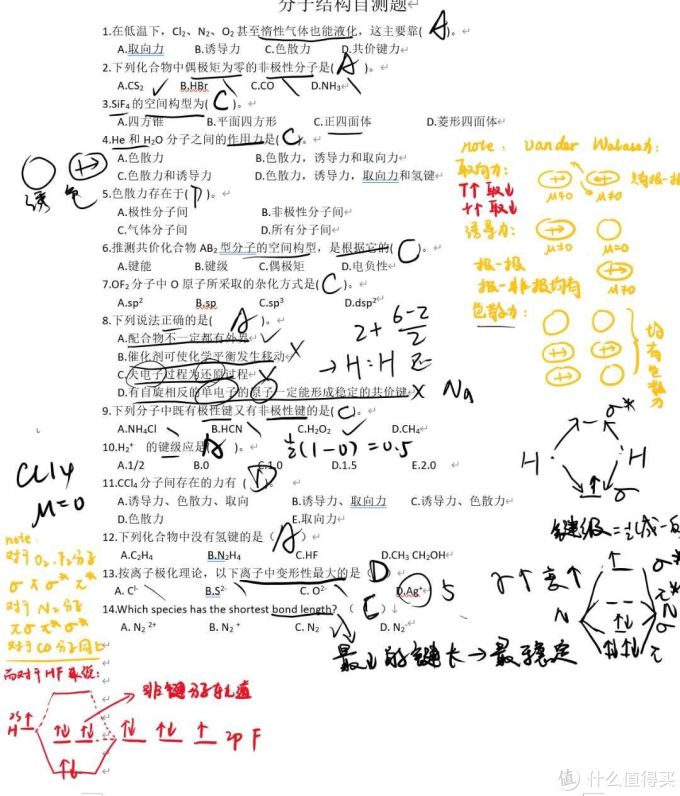 分子结构自测题
1.在低温下，Cl₂、N₂、O₂ 甚至惰性气体也能液化，这主要靠( A )。
A.取向力 B.诱导力 C.色散力 D.共价键力
2.下列化合物中偶极矩为零的非极性分子是( A )。
A.CS₂ ✓ B.HBr C.CO D.NH₃
3.SiF₄ 的空间构型为( C )。
A.四方锥 B.平面四方形 C.正四面体 D.菱形四面体
4.He 和 H₂O 分子之间的作用力是( C )。
A.色散力 B.色散力，诱导力和取向力
C.色散力和诱导力 D.色散力，诱导力，取向力和氢键
诱 色
5.色散力存在于( D )。
A.极性分子间 B.非极性分子间
C.气体分子间 D.所有分子间
6.推测共价化合物 AB₂ 型分子的空间构型，是根据它的( )。
A.键能 B.键级 C.偶极矩 D.电负性
7.OF₂ 分子中 O 原子所采取的杂化方式是( C )。
A.sp² B.sp C.sp³ D.dsp²
8.下列说法正确的是( A )。
A.配合物不一定都有外界 ✓
B.催化剂可使化学平衡发生移动 X
C.失电子过程为还原过程
D.有自旋相反的单电子的原子一定能形成稳定的共价键 X Na
2+ (6-2)/2
→ H:H
9.下列分子中既有极性键又有非极性键的是( C )。
A.NH₄Cl B.HCN C.H₂O₂ ✓ D.CH₄
10.H₂⁺ 的键级应是( A )。 ½(1-0)=0.5
A.1/2 B.0 C.1.0 D.1.5 E.2.0
11.CCl₄ 分子间存在的力有 ( D )。
A.诱导力、色散力、取向 B.诱导力、取向力 C.诱导力、色散力
D.色散力 E.取向力
12.下列化合物中没有氢键的是（ A ）
A.C₂H₄ B.N₂H₄ C.HF D.CH₃ CH₂OH
13.按离子极化理论，以下离子中变形性最大的是（ D ）
A. Cˡ⁻ B.S²⁻ C. O²⁻ D.Ag⁺ 5
14.Which species has the shortest bond length? （ C ）
A. N₂ ²⁺ B. N₂ ⁺ C. N₂ D. N₂⁻
最山的键长→最稳定
CCl4
μ=0
note:
对于O₂.F₂分子
σ π π* σ*
对于N₂分子
π σ π* σ*
对于CO分子同上
而对于HF来说:
非键分子轨道
2s
H
2p F
note: Vander Walase力:
取向力:
T↑取↓
μ↑取↓
μ≠0 μ≠0
诱导力:
μ≠0 μ=0
极-极
极-非极均有
μ≠0
色散力:
均有色散力
σ*
H H
σ
键级=
σ*
π*
N N
σ
π
值 什么值得买